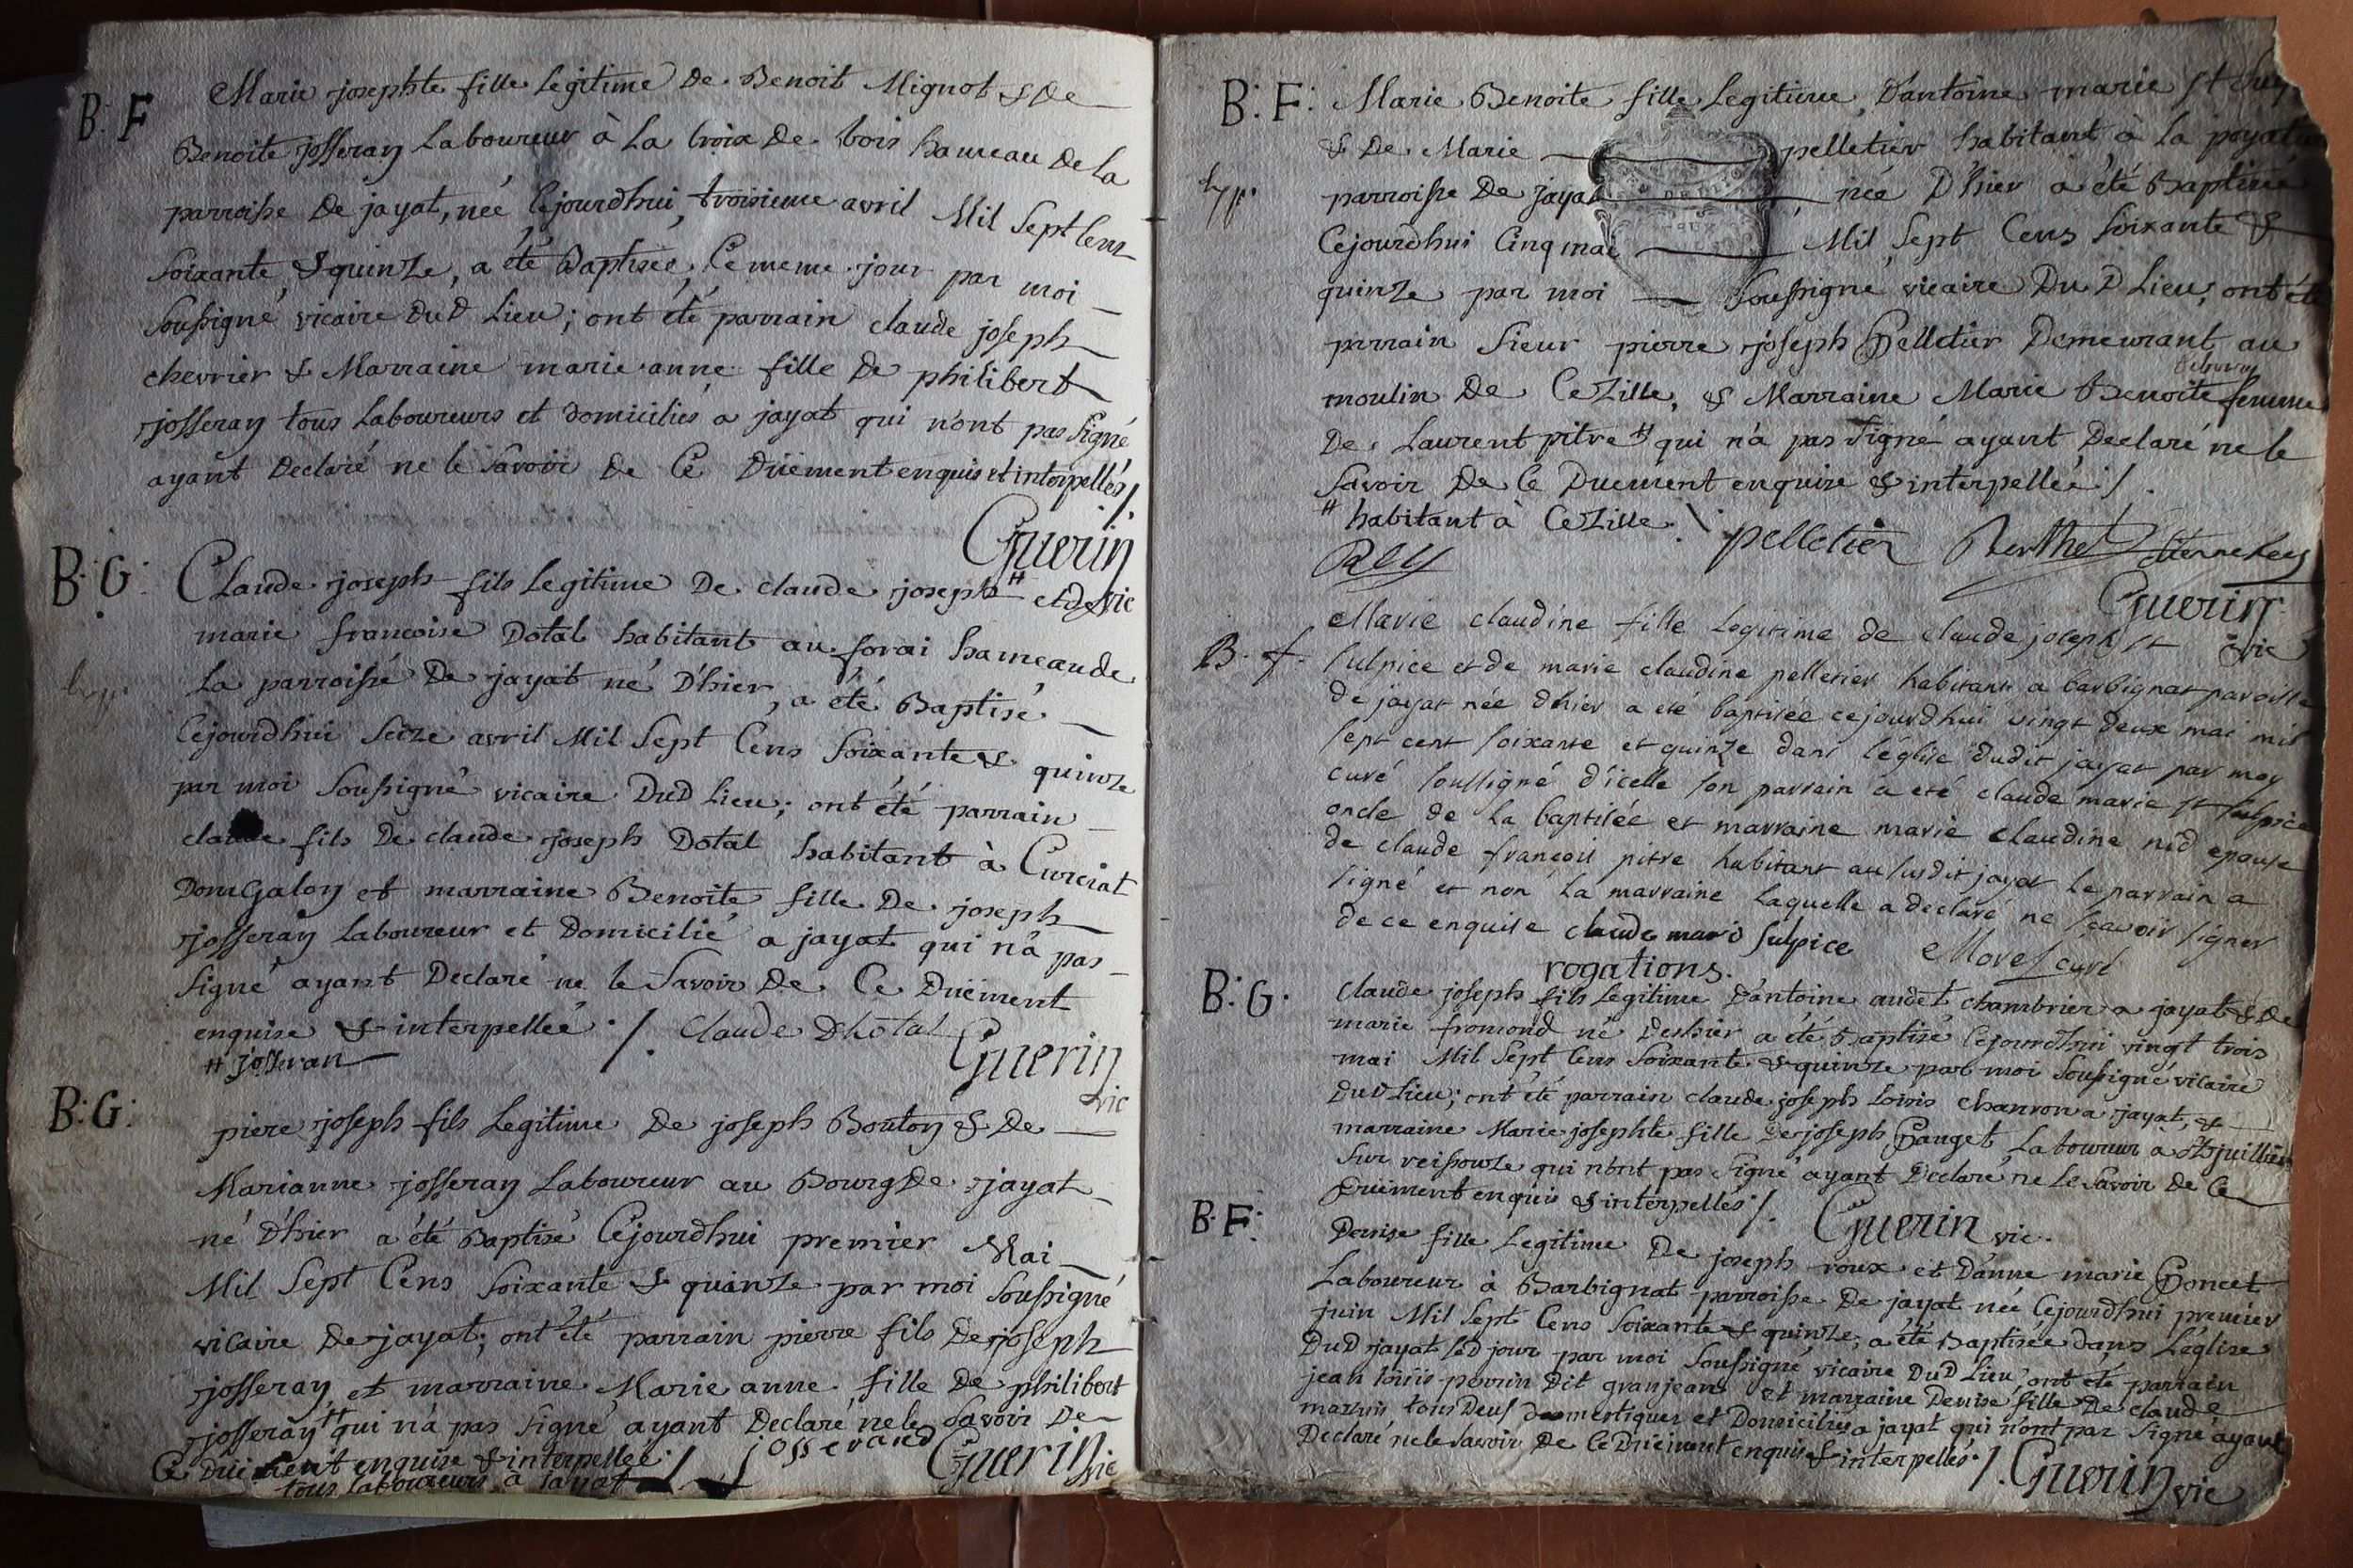 B: F
Marie josephte fille legitime De Benoit Mignot & De
Benoite josseran Laboureur à La Croix De bois hameau de la
parroisse De jayat, née Cejourdhui troisieme avril Mil Sept Cens
soixante & quinze, a été Baptisée Ce meme jour par moi
soussigné vicaire DuD Lieu; ont été parrain claude joseph
chevrier & Marraine marie anne fille De philibert
josseran tous Laboureurs et domiciliés a jayat qui n'ont pas signé
ayant Declaré ne le sçavoir De Ce Duëment enquis et interpellés /.
Guerin
vic
B: G:
Claude joseph fils legitime De claude joseph # et de
marie francoise Dotal habitant au forai hameau de
La parroisse De jayat né D'hier, a été Baptisé
Cejourdhui seize avril Mil Sept Cens soixante & quinze
par moi soussigné vicaire DuD Lieu; ont été parrain
claude fils De claude joseph Dotal habitant à Curciat
Domgalon et marraine Benoite fille De joseph
josseran Laboureur et Domicilié a jayat qui n'a pas
signé ayant Declaré ne le savoir De Ce Duëment
enquise & interpellée /. Claude Dhotal
# josseran
Guerin
vic
B: G:
piere joseph fils Legitime De joseph Bouton & De
Marianne josseran Laboureur au Bourg De jayat
né D'hier a été Baptisé Cejourdhui premier Mai
Mil Sept Cens soixante & quinze par moi soussigné
vicaire De jayat; ont été parrain pierre fils De joseph
josseran et marraine Marie anne fille De philibert
josseran # qui n'a pas signé ayant Declaré ne le savoir De
Ce Duëment enquise & interpellée /. josserand
tous laboureurs a jayat
Guerin vic
B: F:
Marie Benoite fille Legitime D'antoine marie
& De Marie pelletier habitant à La
parroisse De jayat née D'hier a été Baptisée
Cejourdhui Cinq mai Mil Sept Cens soixante &
quinze par moi soussigné vicaire DuD Lieu; ont été
parrain sieur pierre joseph Pelletier Demeurant au
moulin De Cezille, & Marraine Marie Benoite femme
De Laurent pitre # qui n'a pas signé ayant Declaré ne le
savoir De Ce Duëment enquise & interpellée /.
# habitant à Cezille.
pelletier Berthet
Rey
Guerin
vic
B. f.
Marie claudine fille legitime de claude joseph st
sulpice et de marie claudine pelletier habitant a barbignat paroisse
de jayat née dhier a eté baptisée cejourdhui vingt deux mai mil
sept cent soixante et quinze dans l'église dudit jayat par moy
curé soussigné d'icelle son parrain a eté claude marie st sulpice
oncle de la baptisée et marraine marie claudine nid epouse
de claude françois pitre habitant au susdit jayat le parrain a
signé et non la marraine laquelle a declaré ne sçavoir signer
de ce enquise claude mari sulpice
Morel curé
rogations.
B: G.
claude joseph fils legitime D'antoine audet chambrier a jayat & De
marie fromond né Deshier a été Baptisé Cejourdhui vingt trois
mai Mil Sept Cens soixante & quinze par moi soussigné vicaire
DuD Lieu; ont été parrain claude joseph Loisis chanron a jayat, &
marraine Marie josephte fille De joseph Pauget Laboureur a St juillien
sur veissouze qui n'ont pas signé ayant Declaré ne le savoir De Ce
Duëment enquis & interpellés /.
Guerin vic.
B: F:
Denise fille Legitime De joseph roux et D'anne marie Poncet
Laboureur à Barbignat parroisse De jayat née Cejourdhui premier
juin Mil Sept Cens soixante & quinze, a été Baptisée dans L'église
DuD jayat led jour par moi soussigné vicaire DuD Lieu ont été parrain
jean louis perrin Dit granjean et marraine Denise fille De claude
tous Deux domestiques et Domiciliés a jayat qui n'ont pas signé ayant
Declaré ne le savoir De Ce Duëment enquis & interpellés /.
Guerin vic